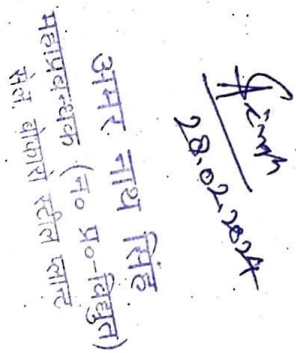 28.02.2024
अमर नाथ सिंह
महाप्रबन्धक (न० प्र०-विद्युत)
सेल, बोकारो स्टील प्लान्ट